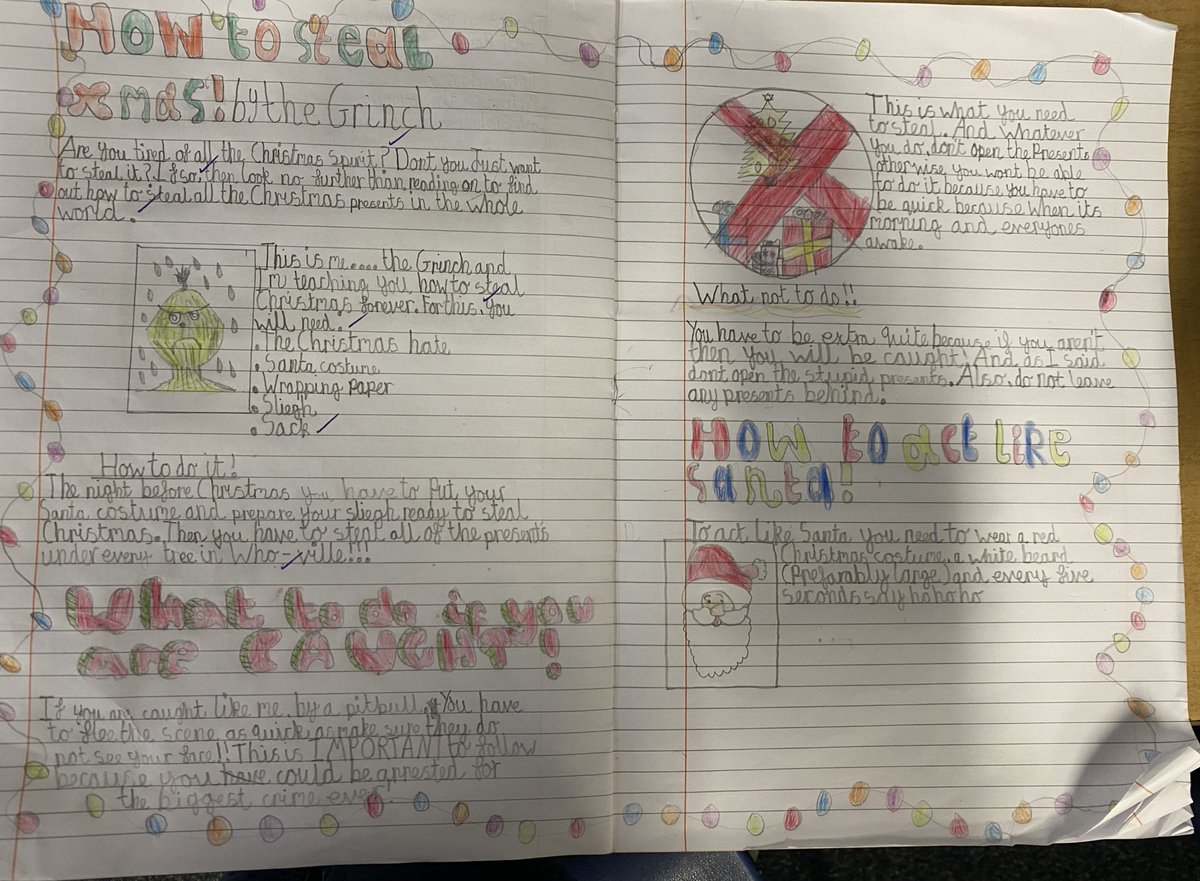 How to steal
xmas! by the Grinch
Are you tired of all the Christmas Spirit? Dont you Just want
to steal it? If so, then look no further than reading on to find
out how to steal all the Christmas presents in the whole
world.
This is me.... the Grinch and
I'm teaching you how to steal
Christmas forever. For this, you
will need.
• The Christmas hate
• Santa costume
• Wrapping Paper
• Sliegh
• Sack
How to do it!
The night before Christmas you have to Put your
Santa costume and prepare your sliegh ready to steal
Christmas. Then you have to steal all of the present's
under every tree in Who-ville!!!
What to do if you
are CAUGHT!
If you are caught like me, by a pitbull, You have
to flee the scene as quick as make sure they do
not see your face!! This is IMPORTANT to follow
because you have could be arrested for
the biggest crime ever.
This is what you need
to steal. And whatever
you do, don't open the Presents
otherwise you wont be able
to do it because you have to
be quick because when its
morning and everyones
awake.
What not to do!!
You have to be extra quite because if you aren't
then you will be caught! And as I said
dont open the stupid presents. Also, do not leave
any presents behind.
How to act like
Santa!
To act like Santa you need to wear a red
Christmas costume, a white beard
(Prefarably large) and every five
seconds say ho ho ho